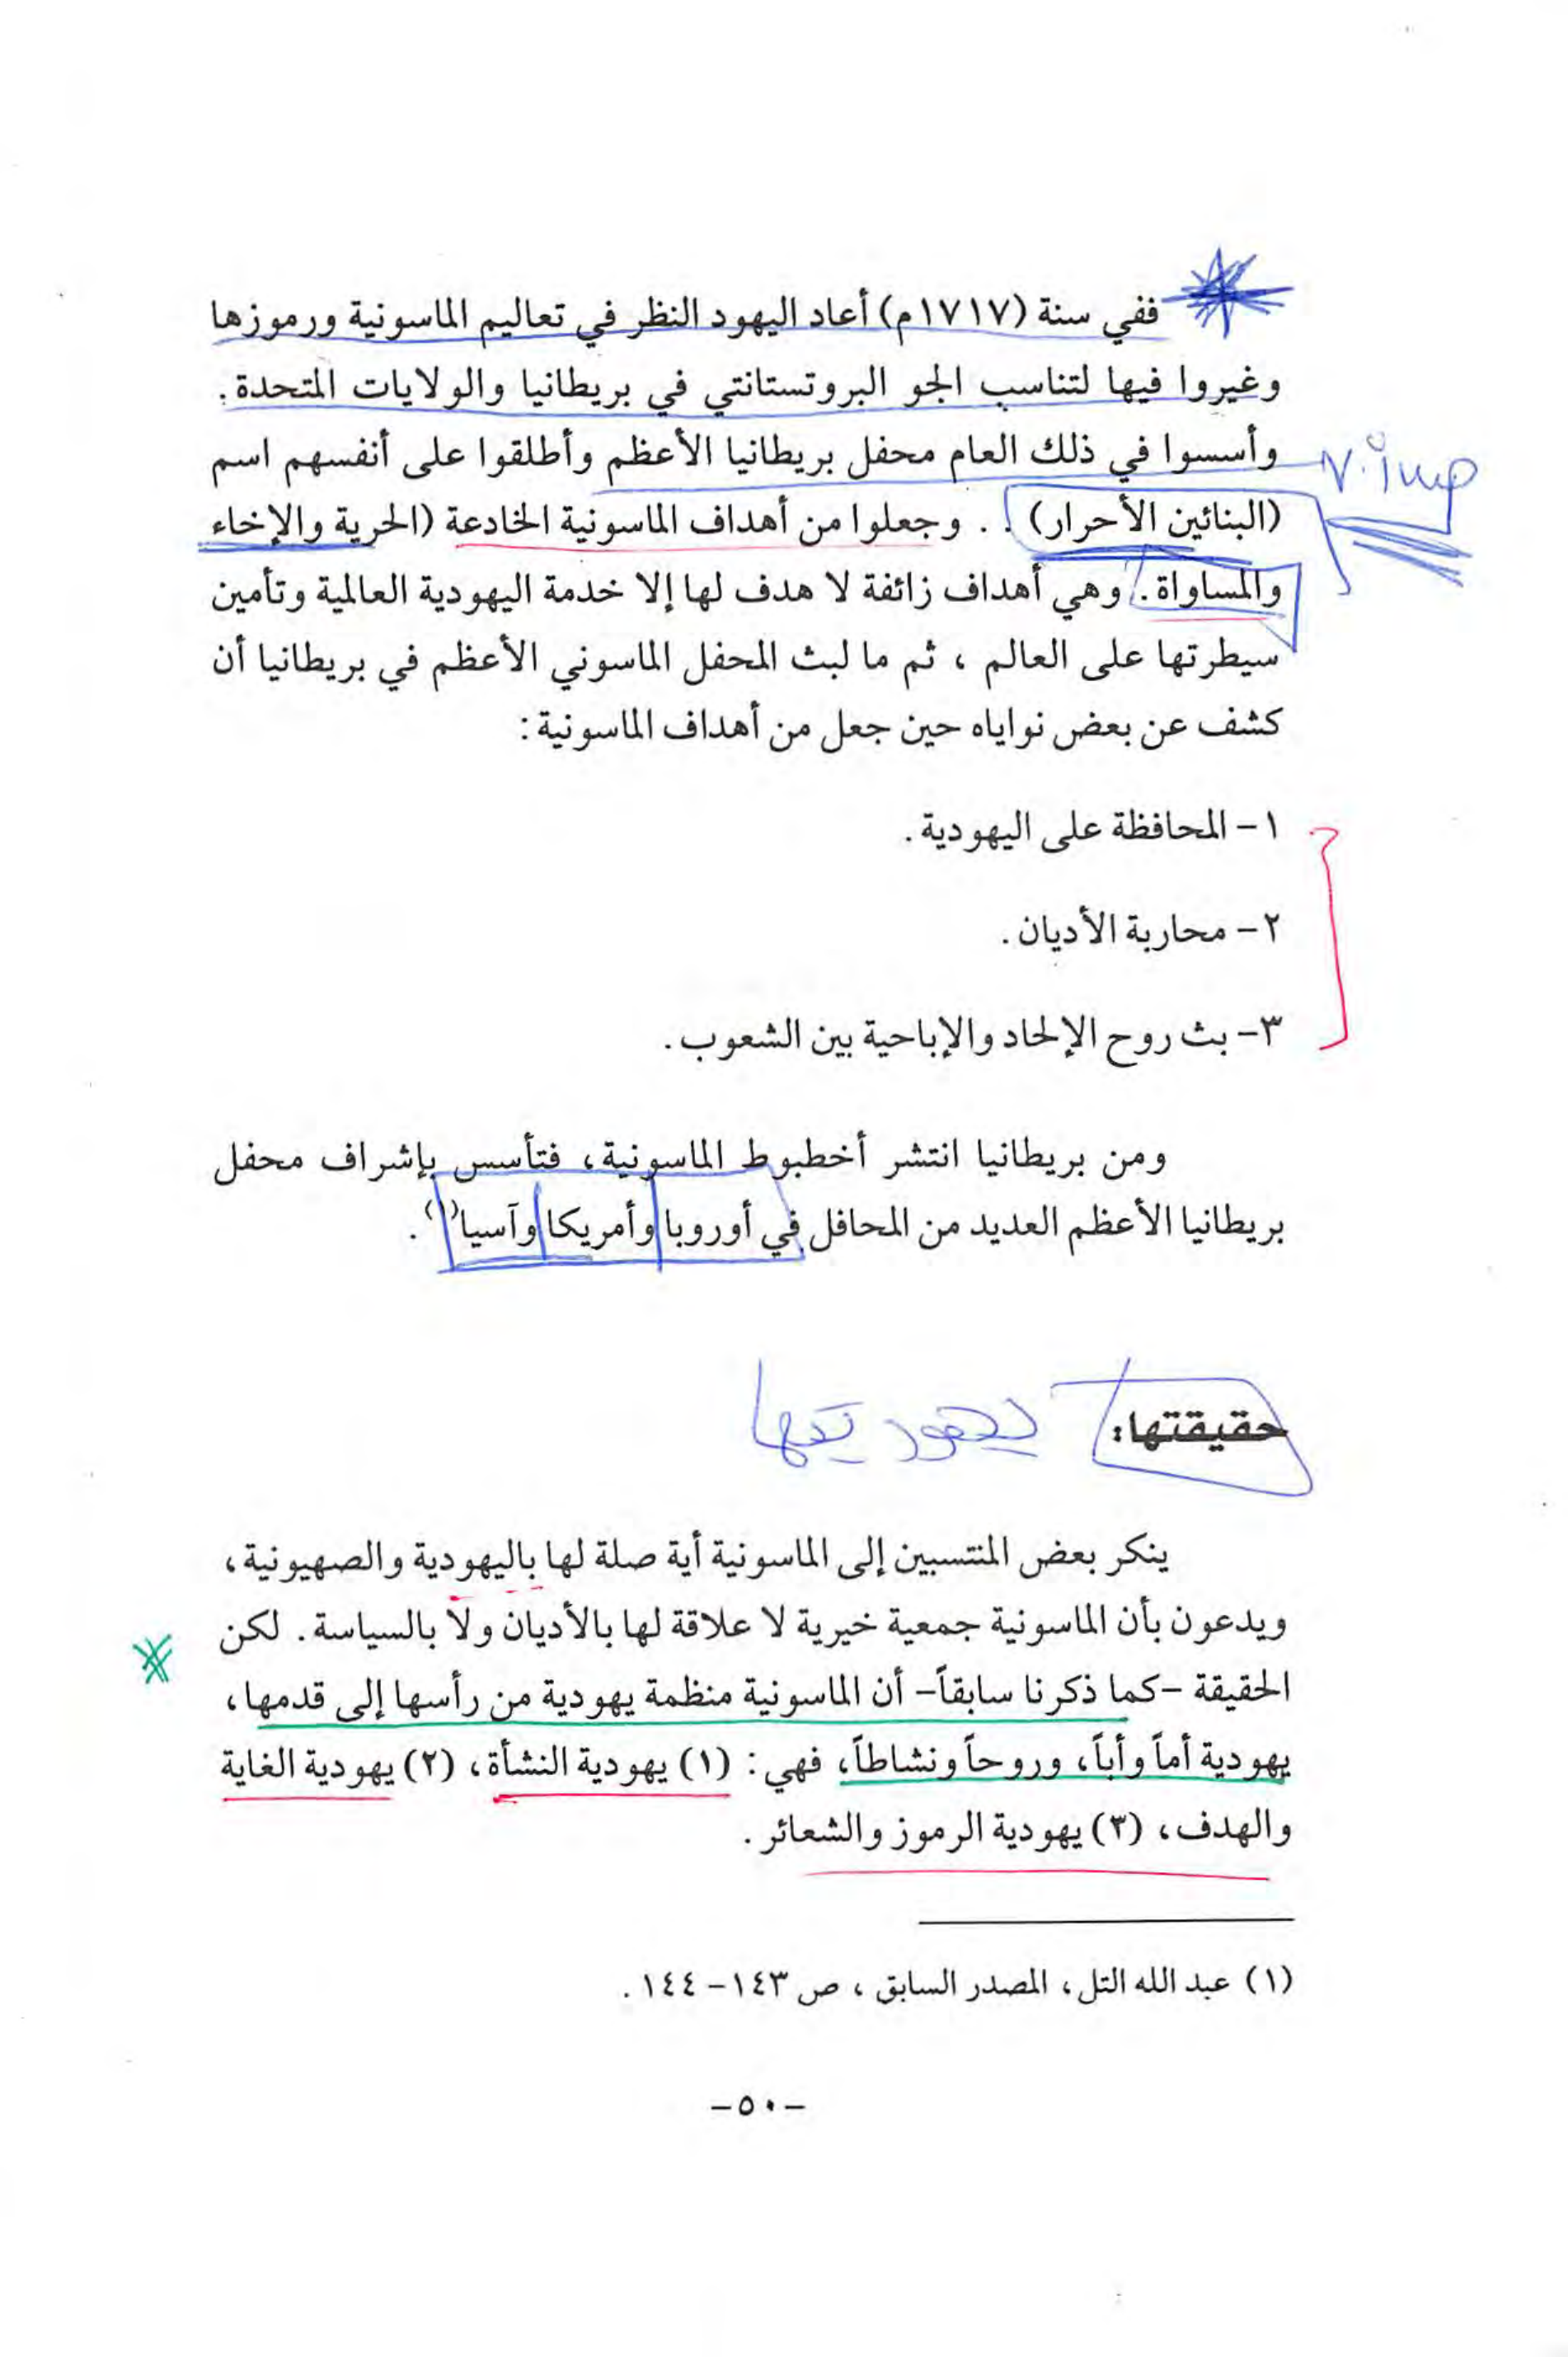 ففي سنة (١٧١٧م) أعاد اليهود النظر في تعاليم الماسونية ورموزها
وغيروا فيها لتناسب الجو البروتستانتي في بريطانيا والولايات المتحدة.
وأسسوا في ذلك العام محفل بريطانيا الأعظم وأطلقوا على أنفسهم اسم
V. imp
(البنائين الأحرار) . . وجعلوا من أهداف الماسونية الخادعة (الحرية والإخاء
والمساواة. وهي أهداف زائفة لا هدف لها إلا خدمة اليهودية العالمية وتأمين
سيطرتها على العالم ، ثم ما لبث المحفل الماسوني الأعظم في بريطانيا أن
كشف عن بعض نواياه حين جعل من أهداف الماسونية:
١- المحافظة على اليهودية.
٢- محاربة الأديان.
٣- بث روح الإلحاد والإباحية بين الشعوب.
ومن بريطانيا انتشر أخطبوط الماسونية، فتأسس بإشراف محفل
بريطانيا الأعظم العديد من المحافل في أوروبا وأمريكا وآسيا(١).
حقيقتها: يهوديتها
ينكر بعض المنتسبين إلى الماسونية أية صلة لها باليهودية والصهيونية،
ويدعون بأن الماسونية جمعية خيرية لا علاقة لها بالأديان ولا بالسياسة. لكن
الحقيقة -كما ذكرنا سابقاً- أن الماسونية منظمة يهودية من رأسها إلى قدمها،
يهودية أماً وأباً، وروحاً ونشاطاً، فهي: (١) يهودية النشأة، (٢) يهودية الغاية
والهدف، (٣) يهودية الرموز والشعائر.
(١) عبد الله التل، المصدر السابق ، ص ١٤٣- ١٤٤ .
-٥٠-